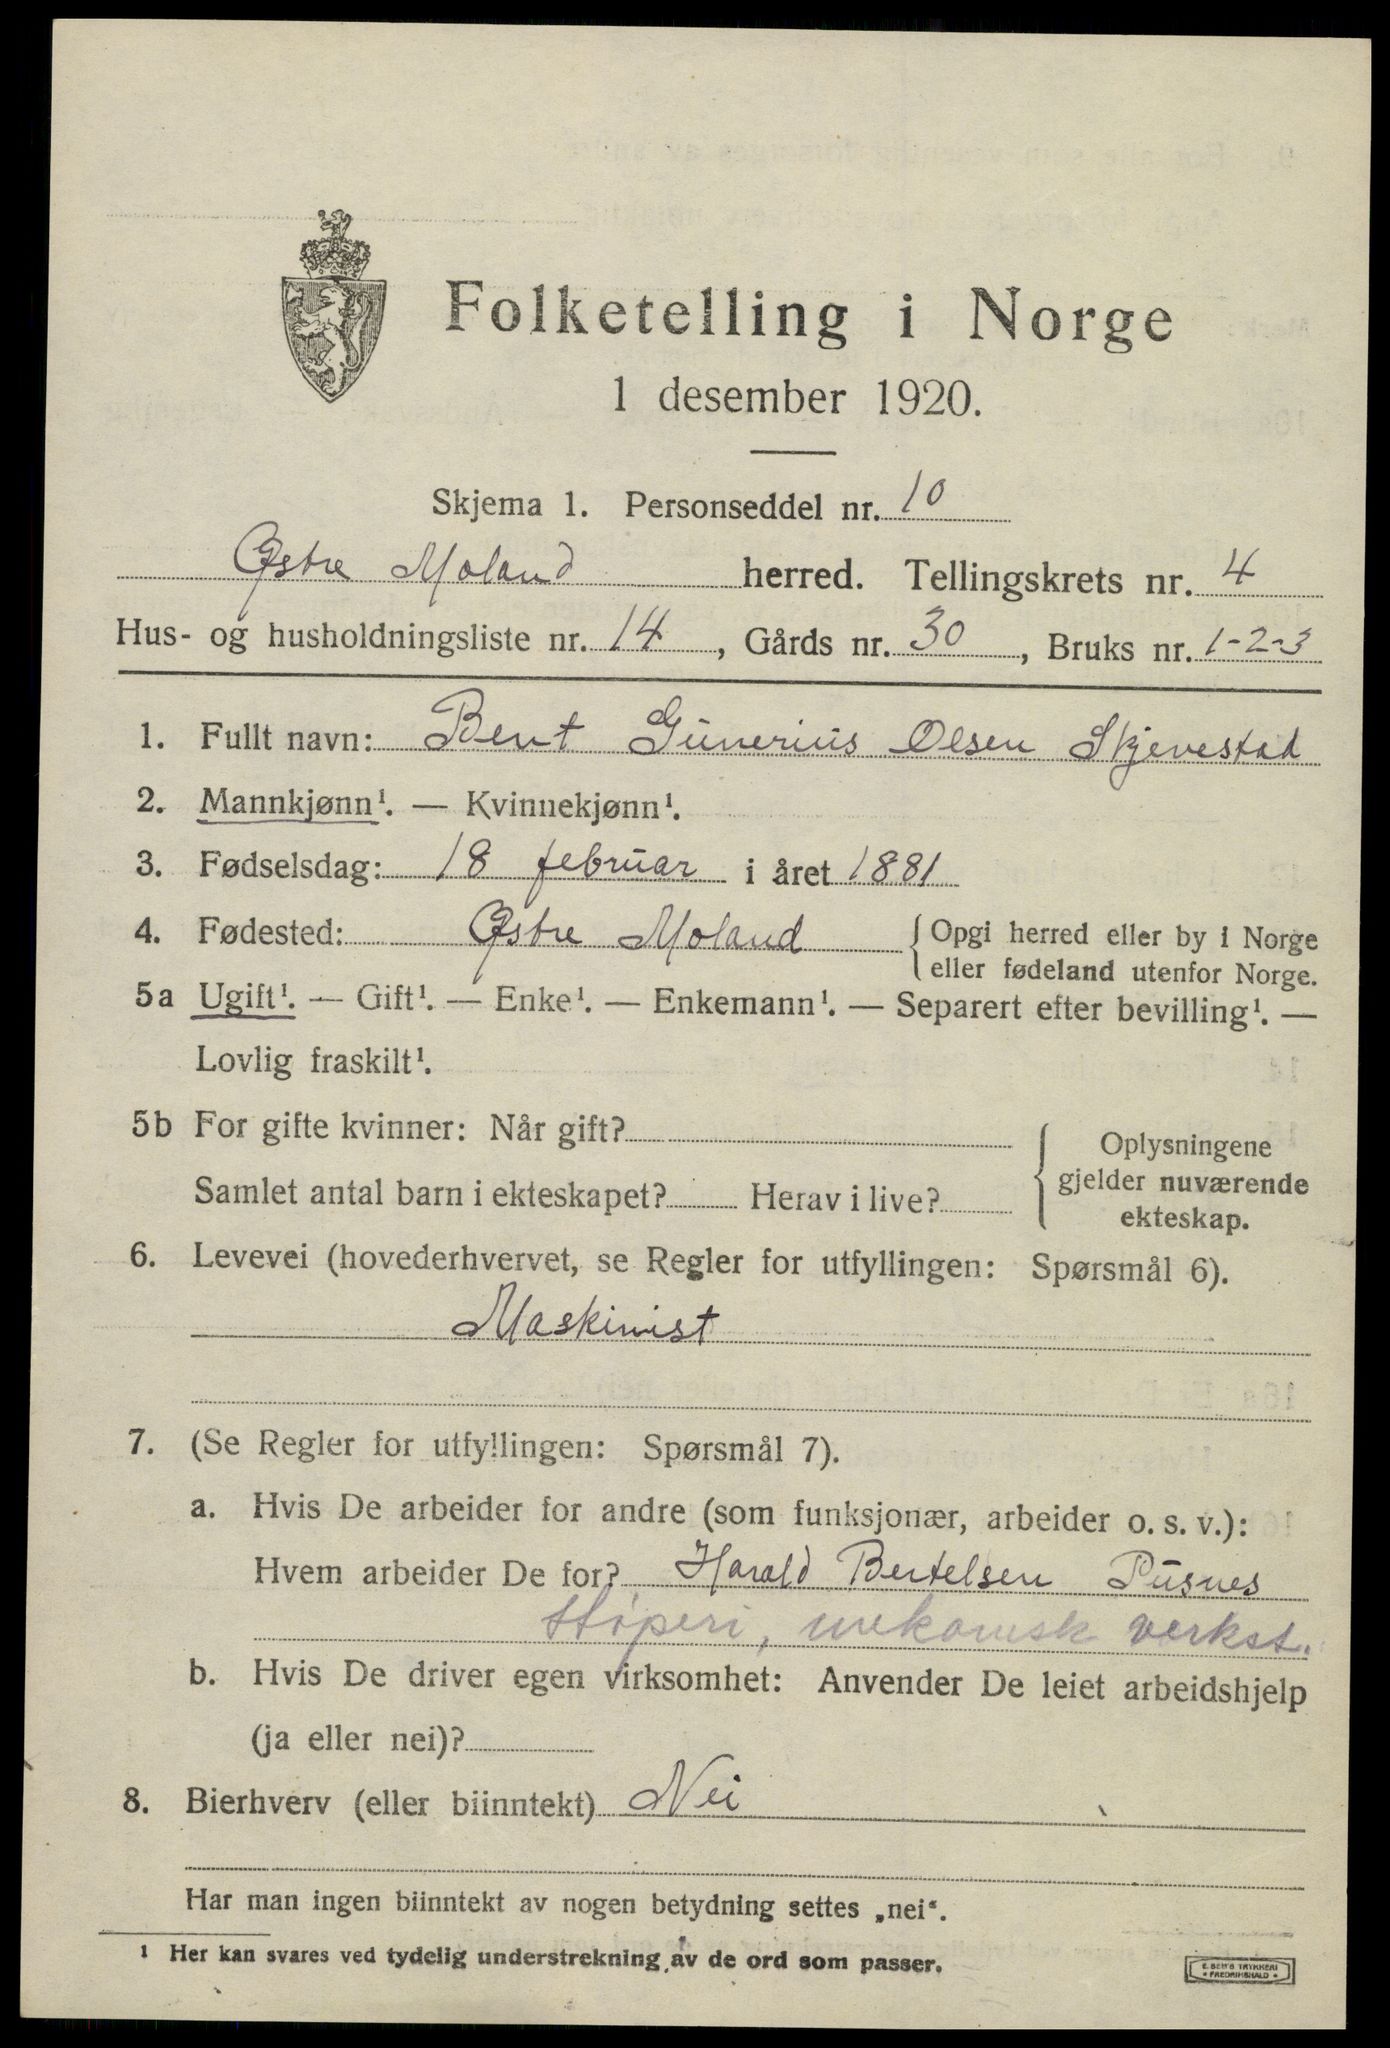 Folketelling i Norge
1 desember 1920.
Skjema 1. Personseddel nr. 10
Østre Moland herred. Tellingskrets nr. 4
Hus- og husholdningsliste nr. 14, Gårds nr. 30, Bruks nr. 1-2-3
1. Fullt navn: Bent Gunerius Olsen Skjevestad
2. Mannkjønn¹. — Kvinnekjønn¹.
3. Fødselsdag: 18 februar i året 1881
4. Fødested: Østre Moland { Opgi herred eller by i Norge
eller fødeland utenfor Norge.
5a Ugift¹. — Gift¹. — Enke¹. — Enkemann¹. — Separert efter bevilling¹. —
Lovlig fraskilt¹.
5b For gifte kvinner: Når gift?
Samlet antal barn i ekteskapet? Herav i live?
{ Oplysningene
gjelder nuværende
ekteskap.
6. Levevei (hovederhvervet, se Regler for utfyllingen: Spørsmål 6).
Maskinist
7. (Se Regler for utfyllingen: Spørsmål 7).
a. Hvis De arbeider for andre (som funksjonær, arbeider o. s. v.):
Hvem arbeider De for? Harald Bertelsen Pusnes
støperi, mekanisk verkst.
b. Hvis De driver egen virksomhet: Anvender De leiet arbeidshjelp
(ja eller nei)?
8. Bierhverv (eller biinntekt) Nei
Har man ingen biinntekt av nogen betydning settes „nei“.
¹ Her kan svares ved tydelig understrekning av de ord som passer.
E. SEM'S TRYKKERI
* FREDRIKSHALD *